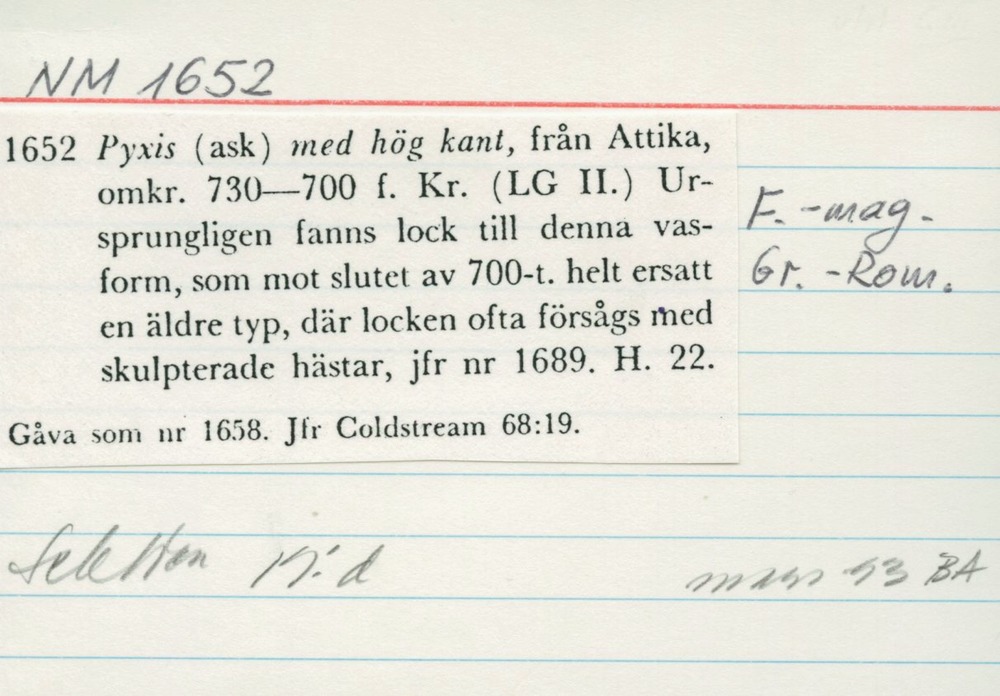 NM 1652
1652 Pyxis (ask) med hög kant, från Attika,
omkr. 730—700 f. Kr. (LG II.) Ur-
sprungligen fanns lock till denna vas-
form, som mot slutet av 700-t. helt ersatt
en äldre typ, där locken ofta försågs med
skulpterade hästar, jfr nr 1689. H. 22.
Gåva som nr 1658. Jfr Coldstream 68:19.
F. -mag.
Gr. -Rom.
mars 93 BA